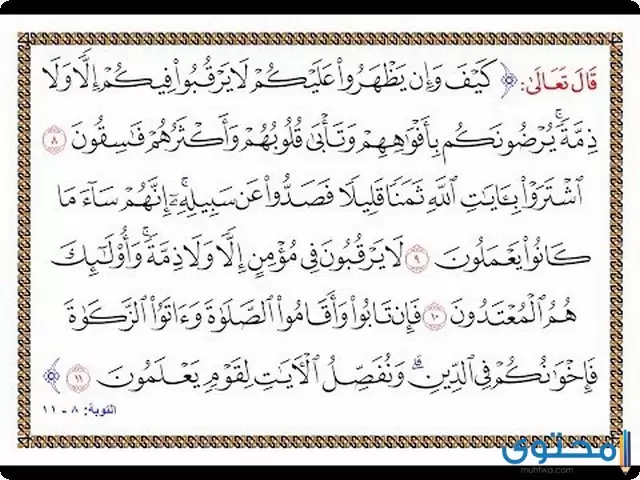 قَالَ تَعَالَىٰ: ﴿ كَيْفَ وَإِن يَظْهَرُوا۟ عَلَيْكُمْ لَا يَرْقُبُوا۟ فِيكُمْ إِلًّا وَلَا
ذِمَّةً ۚ يُرْضُونَكُم بِأَفْوَٰهِهِمْ وَتَأْبَىٰ قُلُوبُهُمْ وَأَكْثَرُهُمْ فَـٰسِقُونَ ٨
ٱشْتَرَوْا۟ بِـَٔايَـٰتِ ٱللَّهِ ثَمَنًا قَلِيلًا فَصَدُّوا۟ عَن سَبِيلِهِۦٓ ۚ إِنَّهُمْ سَآءَ مَا
كَانُوا۟ يَعْمَلُونَ ٩ لَا يَرْقُبُونَ فِى مُؤْمِنٍ إِلًّا وَلَا ذِمَّةً ۚ وَأُو۟لَـٰٓئِكَ
هُمُ ٱلْمُعْتَدُونَ ١٠ فَإِن تَابُوا۟ وَأَقَامُوا۟ ٱلصَّلَوٰةَ وَءَاتَوُا۟ ٱلزَّكَوٰةَ
فَإِخْوَٰنُكُمْ فِى ٱلدِّينِ ۗ وَنُفَصِّلُ ٱلْـَٔايَـٰتِ لِقَوْمٍ يَعْلَمُونَ ١١ ﴾
التوبة: ٨ - ١١
محتوى
muhtwa.com